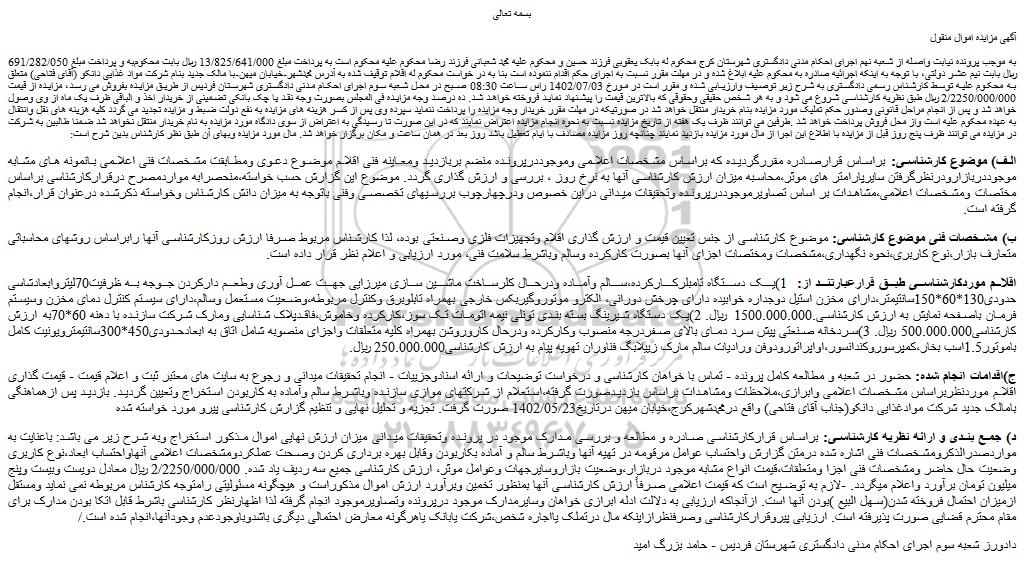 بسمه تعالی
آگهی مزایده اموال منقول
به موجب پرونده نیابت واصله از شعبه نهم اجرای احکام مدنی دادگستری شهرستان کرج محکوم له بابک یعقوبی فرزند حسین و محکوم علیه محمد شعبانی فرزند رضا محکوم علیه محکوم است به پرداخت مبلغ 13/825/641/000 ریال بابت محکوم‌به و پرداخت مبلغ 691/282/050
ریال بابت نیم عشر دولتی، با توجه به اینکه اجرائیه صادره به محکوم علیه ابلاغ شده و در مهلت مقرر نسبت به اجرای حکم اقدام ننموده است بنا به در خواست محکوم له اقلام توقیف شده به آدرس محمدشهر.خیابان میهن.با مالک جدید بنام شرکت مواد غذایی دانکو (آقای فتاحی) متعلق
به محکوم علیه توسط کارشناس رسمی دادگستری به شرح زیر توصیف وارزیابی شده و مقرر است در مورخ 1402/07/03 راس ساعت 08:30 صبح در محل شعبه سوم اجرای احکام مدنی دادگستری شهرستان فردیس از طریق مزایده بفروش می رسد، مزایده از قیمت
2/2250/000/000ریال طبق نظریه کارشناسی شروع می شود و به هر شخص حقیقی وحقوقی که بالاترین قیمت را پیشنهاد نماید فروخته خواهد شد. ده درصد وجه مزایده فی المجلس بصورت وجه نقد یا چک بانکی تضمینی از خریدار اخذ و الباقی ظرف یک ماه از وی وصول
خواهد شد و پس از انجام مراحل قانونی وصدور حکم تملیک مورد مزایده بنام خریدار منتقل خواهد شد در صورتیکه در مهلت مقرر خریدار وجه مزایده را پرداخت ننماید سپرده وی پس از کسر هزینه های مزایده به نفع دولت ضبط و مزایده تجدید می گردد کلیه هزینه های نقل وانتقال
به عهده محکوم علیه است واز محل فروش پرداخت خواهد شد .طرفین می توانند ظرف یک هفته از تاریخ مزایده نسبت به نحوه انجام مزایده اعتراض نمایند که در این صورت تا رسیدگی به اعتراض از سوی دادگاه مورد مزایده به نام خریدار منتقل نخواهد شد ضمنا طالبین به شرکت
در مزایده می توانند ظرف پنج روز قبل از مزایده با اطلاع این اجرا از مال مورد مزایده بازدید نمایند چنانچه روز مزایده مصادف با ایام تعطیل باشد روز بعد در همان ساعت و مکان برگزار خواهد شد. مال مورد مزایده وبهای آن طبق نظر کارشناس بدین شرح است:
الف) موضوع کارشناسی: براساس قرارصادره مقررگردیده که براساس مشخصات اعلامی وموجوددرپرونده منضم بربازدید ومعاینه فنی اقلام موضوع دعوی ومطابقت مشخصات فنی اعلامی بانمونه های مشابه
موجوددربازارودرنظرگرفتن سایرپارامتر های موثر،محاسبه میزان ارزش کارشناسی آنها به نرخ روز ، بررسی و ارزش گذاری گردد. موضوع این گزارش حسب خواسته،منحصرابه مواردمصرح درقرارکارشناسی براساس
مختصات ومشخصات اعلامی،مشاهدات بر اساس تصاویرموجوددرپرونده وتحقیقات میدانی دراین خصوص ودرچهارچوب بررسیهای تخصصی وفنی باتوجه به میزان دانش کارشناس وخواسته ذکرشده درعنوان قرار،انجام
گرفته است.
ب) مشخصات فنی موضوع کارشناسی: موضوع کارشناسی از جنس تعیین قیمت و ارزش گذاری اقلام وتجهیزات فلزی وصنعتی بوده، لذا کارشناس مربوط صرفا ارزش روزکارشناسی آنها رابراساس روشهای محاسباتی
متعارف بازار،نوع کاربری،نحوه نگهداری،مشخصات ومختصات اجزای آنها بصورت کارکرده وسالم وباشرط سلامت فنی، مورد ارزیابی و اعلام نظر قرار داده است.
اقلام موردکارشناسی طبق قرارعبارتند از: 1)یک دستگاه تامبلرکارکرده،سالم وآماده ودرحال کلرساخت ماشین سازی میرزایی جهت عمل آوری وطعم دارکردن جوجه به ظرفیت70لیتروابعادشاسی
حدودی130*60*150سانتیمتر،دارای مخزن استیل دوجداره خوابیده دارای چرخش دورانی، الکترو موتوروگیربکس خارجی بهمراه تابلوبرق وکنترل مربوطه،وضعیت مستعمل وسالم،دارای سیستم کنترل دمای مخزن وسیستم
فرمان باصفحه نمایش به ارزش کارشناسی.1500.000.000 ریال. 2)یک دستگاه شیرینگ بسته بندی تونلی نیمه اتومات تک سوز،کارکرده وخاموش،فاقدپلاک شناسایی ومارک شرکت سازنده با دهنه 60*70به ارزش
کارشناسی500.000.000 ریال. 3)سردخانه صنعتی پیش سرد دمای بالای صفردرجه منصوب وکارکرده ودرحال کاروروشن بهمراه کلیه متعلقات واجزای منصوبه شامل اتاق به ابعادحدودی450*300سانتیمترویونیت کامل
باموتور1.5اسب بخار،کمپرسوروکندانسور،اواپراتورودوفن ورادیات سالم مارک زیبلانگ فناوران تهویه پیام به ارزش کارشناسی250.000.000 ریال.
ج)اقدامات انجام شده: حضور در شعبه و مطالعه کامل پرونده - تماس با خواهان کارشناسی و درخواست توضیحات و ارائه اسنادوجزییات - انجام تحقیقات میدانی و رجوع به سایت های معتبر ثبت و اعلام قیمت - قیمت گذاری
اقلام موردنظربراساس مشخصات اعلامی وابرازی،ملاحظات ومشاهدات براساس بازدیدصورت گرفته،استعلام از شرکتهای موازی سازنده وباشرط سالم وآماده به کاربودن استخراج وتعیین گردید. بازدید پس ازهماهنگی
بامالک جدید شرکت موادغذایی دانکو(جناب آقای فتاحی) واقع درمحمدشهرکرج،خیابان میهن درتاریخ1402/05/23 صورت گرفت. تجزیه و تحلیل نهایی و تنظیم گزارش کارشناسی پیرو مورد خواسته شده
د) جمع بندی و ارائه نظریه کارشناسی: براساس قرارکارشناسی صادره و مطالعه و بررسی مدارک موجود در پرونده وتحقیقات میدانی میزان ارزش نهایی اموال مذکور استخراج وبه شرح زیر می باشد: باعنایت به
مواردصدرالذکرومشخصات فنی اشاره شده درمتن گزارش واحتساب عوامل مرقومه در تهیه آنها وباشرط سالم و آماده بکاربودن وقابل بهره برداری کردن وصحت عملکردومشخصات اعلامی آنهاواحتساب ابعاد،نوع کاربری
وضعیت حال حاضر ومشخصات فنی اجزا ومتعلقات،قیمت انواع مشابه موجود دربازار،وضعیت بازاروسایرجهات وعوامل موثر، ارزش کارشناسی جمیع سه ردیف یاد شده. 2/2250/000/000 ریال معادل دویست وبیست وپنج
میلیون تومان برآورد واعلام میگردد. -لازم به توضیح است که قیمت اعلامی صرفاً ارزش کارشناسی آنها بمنظور تخمین وبرآورد ارزش اموال مذکوراست و هیچگونه مسئولیتی رامتوجه کارشناس مربوطه نمی نماید ومستقل
ازمیزان احتمال فروخته شدن(سهل البیع )بودن آنها است. ازآنجاکه ارزیابی به دلالت ادله ابرازی خواهان وسایرمدارک موجود درپرونده وتصاویرموجود انجام گرفته لذا اظهارنظر کارشناسی باشرط قابل اتکا بودن مدارک برای
مقام محترم قضایی صورت پذیرفته است. ارزیابی پیروقرارکارشناسی وصرفنظرازاینکه مال درتملک یااجاره شخص،شرکت یابانک یاهرگونه معارض احتمالی دیگری باشدویاوجودعدم وجودآنها،انجام شده است./
دادورز شعبه سوم اجرای احکام مدنی دادگستری شهرستان فردیس - حامد بزرگ امید